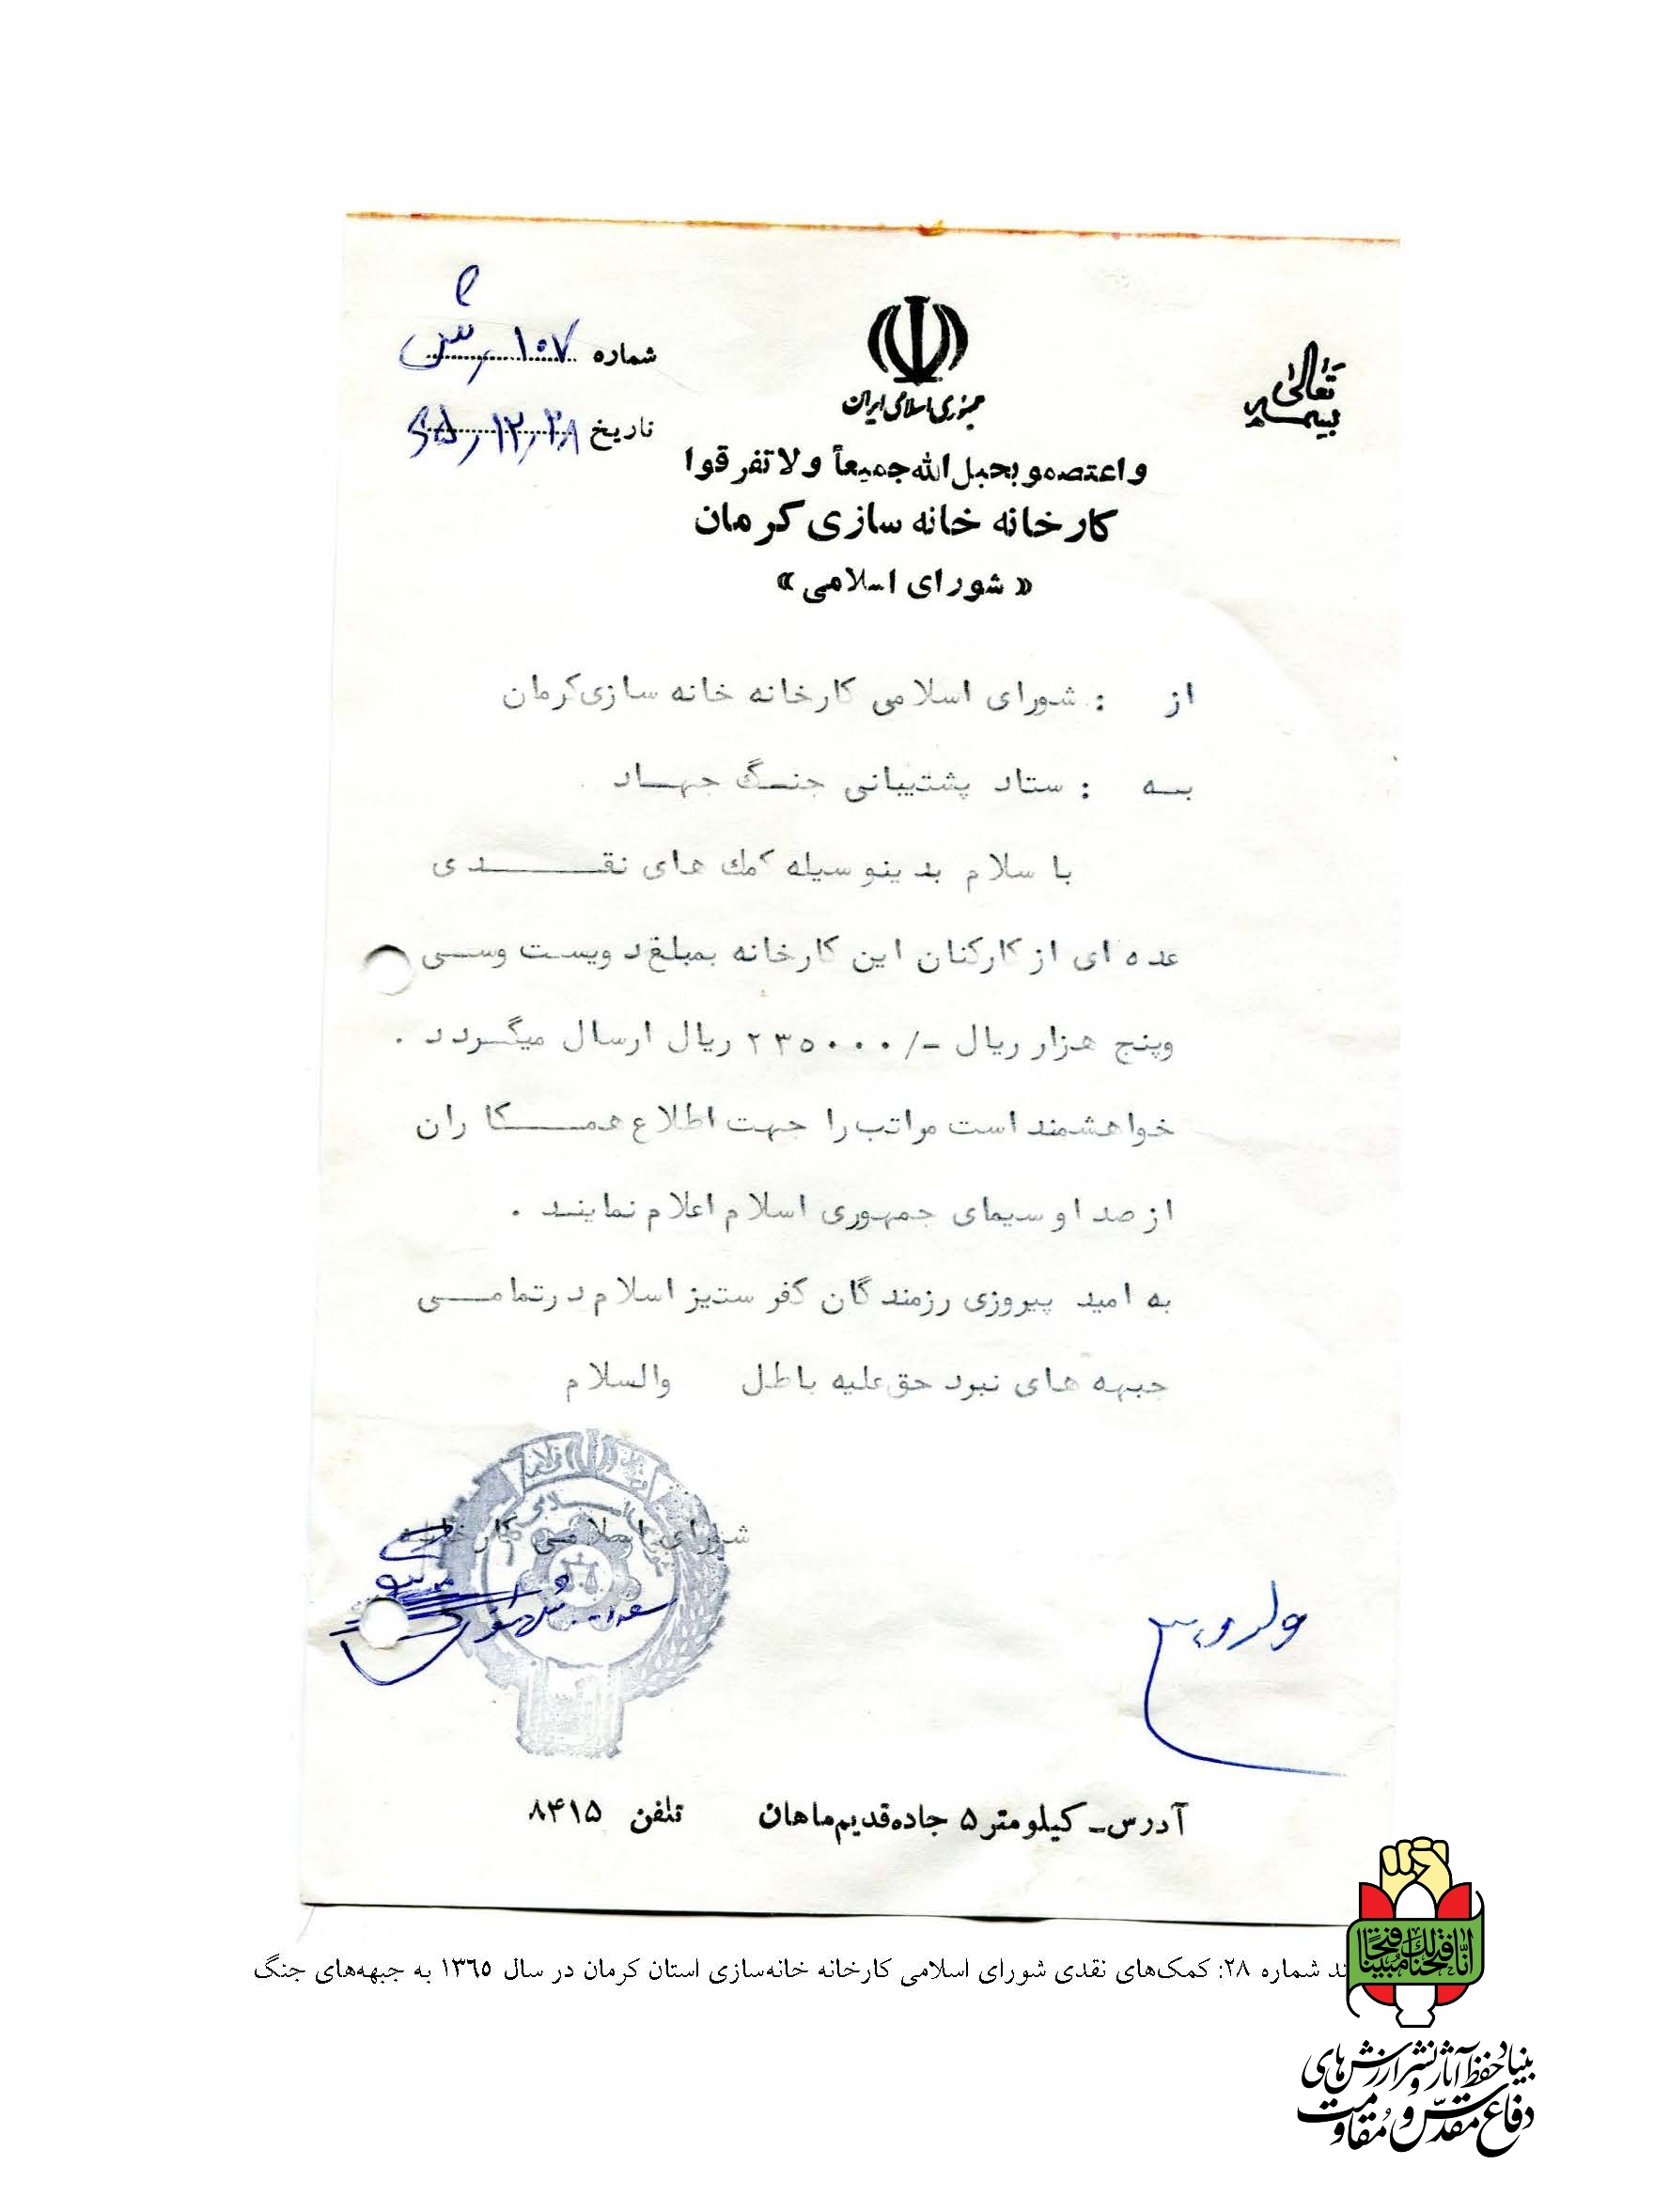 بسمه تعالی
جمهوری اسلامی ایران
شماره ۱۰۷ر ش
تاریخ ۶۵ر۱۲ر۲۸
واعتصموبحبل الله جمیعاً ولاتفرقوا
کارخانه خانه سازی کرمان
«شورای اسلامی»
از : شورای اسلامی کارخانه خانه سازی کرمان
به : ستاد پشتیبانی جنگ جهاد
با سلام بدینوسیله کمك های نقدی
عده ای از کارکنان این کارخانه بمبلغ دویست وسی
وپنج هزار ریال -/۲۳۵۰۰۰ ریال ارسال میگردد .
خواهشمند است مراتب را جهت اطلاع همکاران
از صدا و سیمای جمهوری اسلام اعلام نمایند .
به امید پیروزی رزمندگان کفر ستیز اسلام درتمامی
جبهه های نبرد حق علیه باطل والسلام
شورای اسلامی کارخانه
آدرس - کیلومتر ۵ جاده قدیم ماهان تلفن ۸۴۱۵
ند شماره ۲۸: کمک‌های نقدی شورای اسلامی کارخانه خانه‌سازی استان کرمان در سال ۱۳۶۵ به جبهه‌های جنگ
انا فتحنا لک فتحا مبینا
بنیاد حفظ آثار و نشر ارزش‌های
دفاع مقدّس و مُقاومت